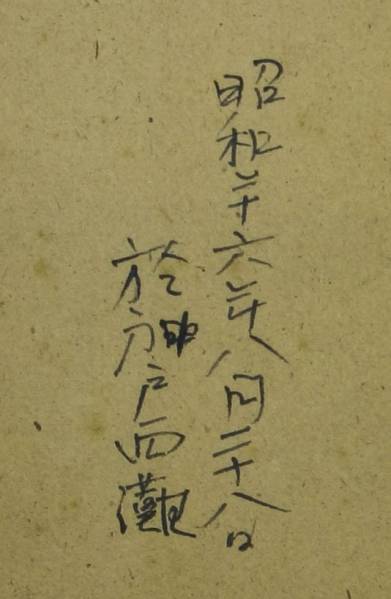 昭和二十六年八月二十八日
於神戸西灘